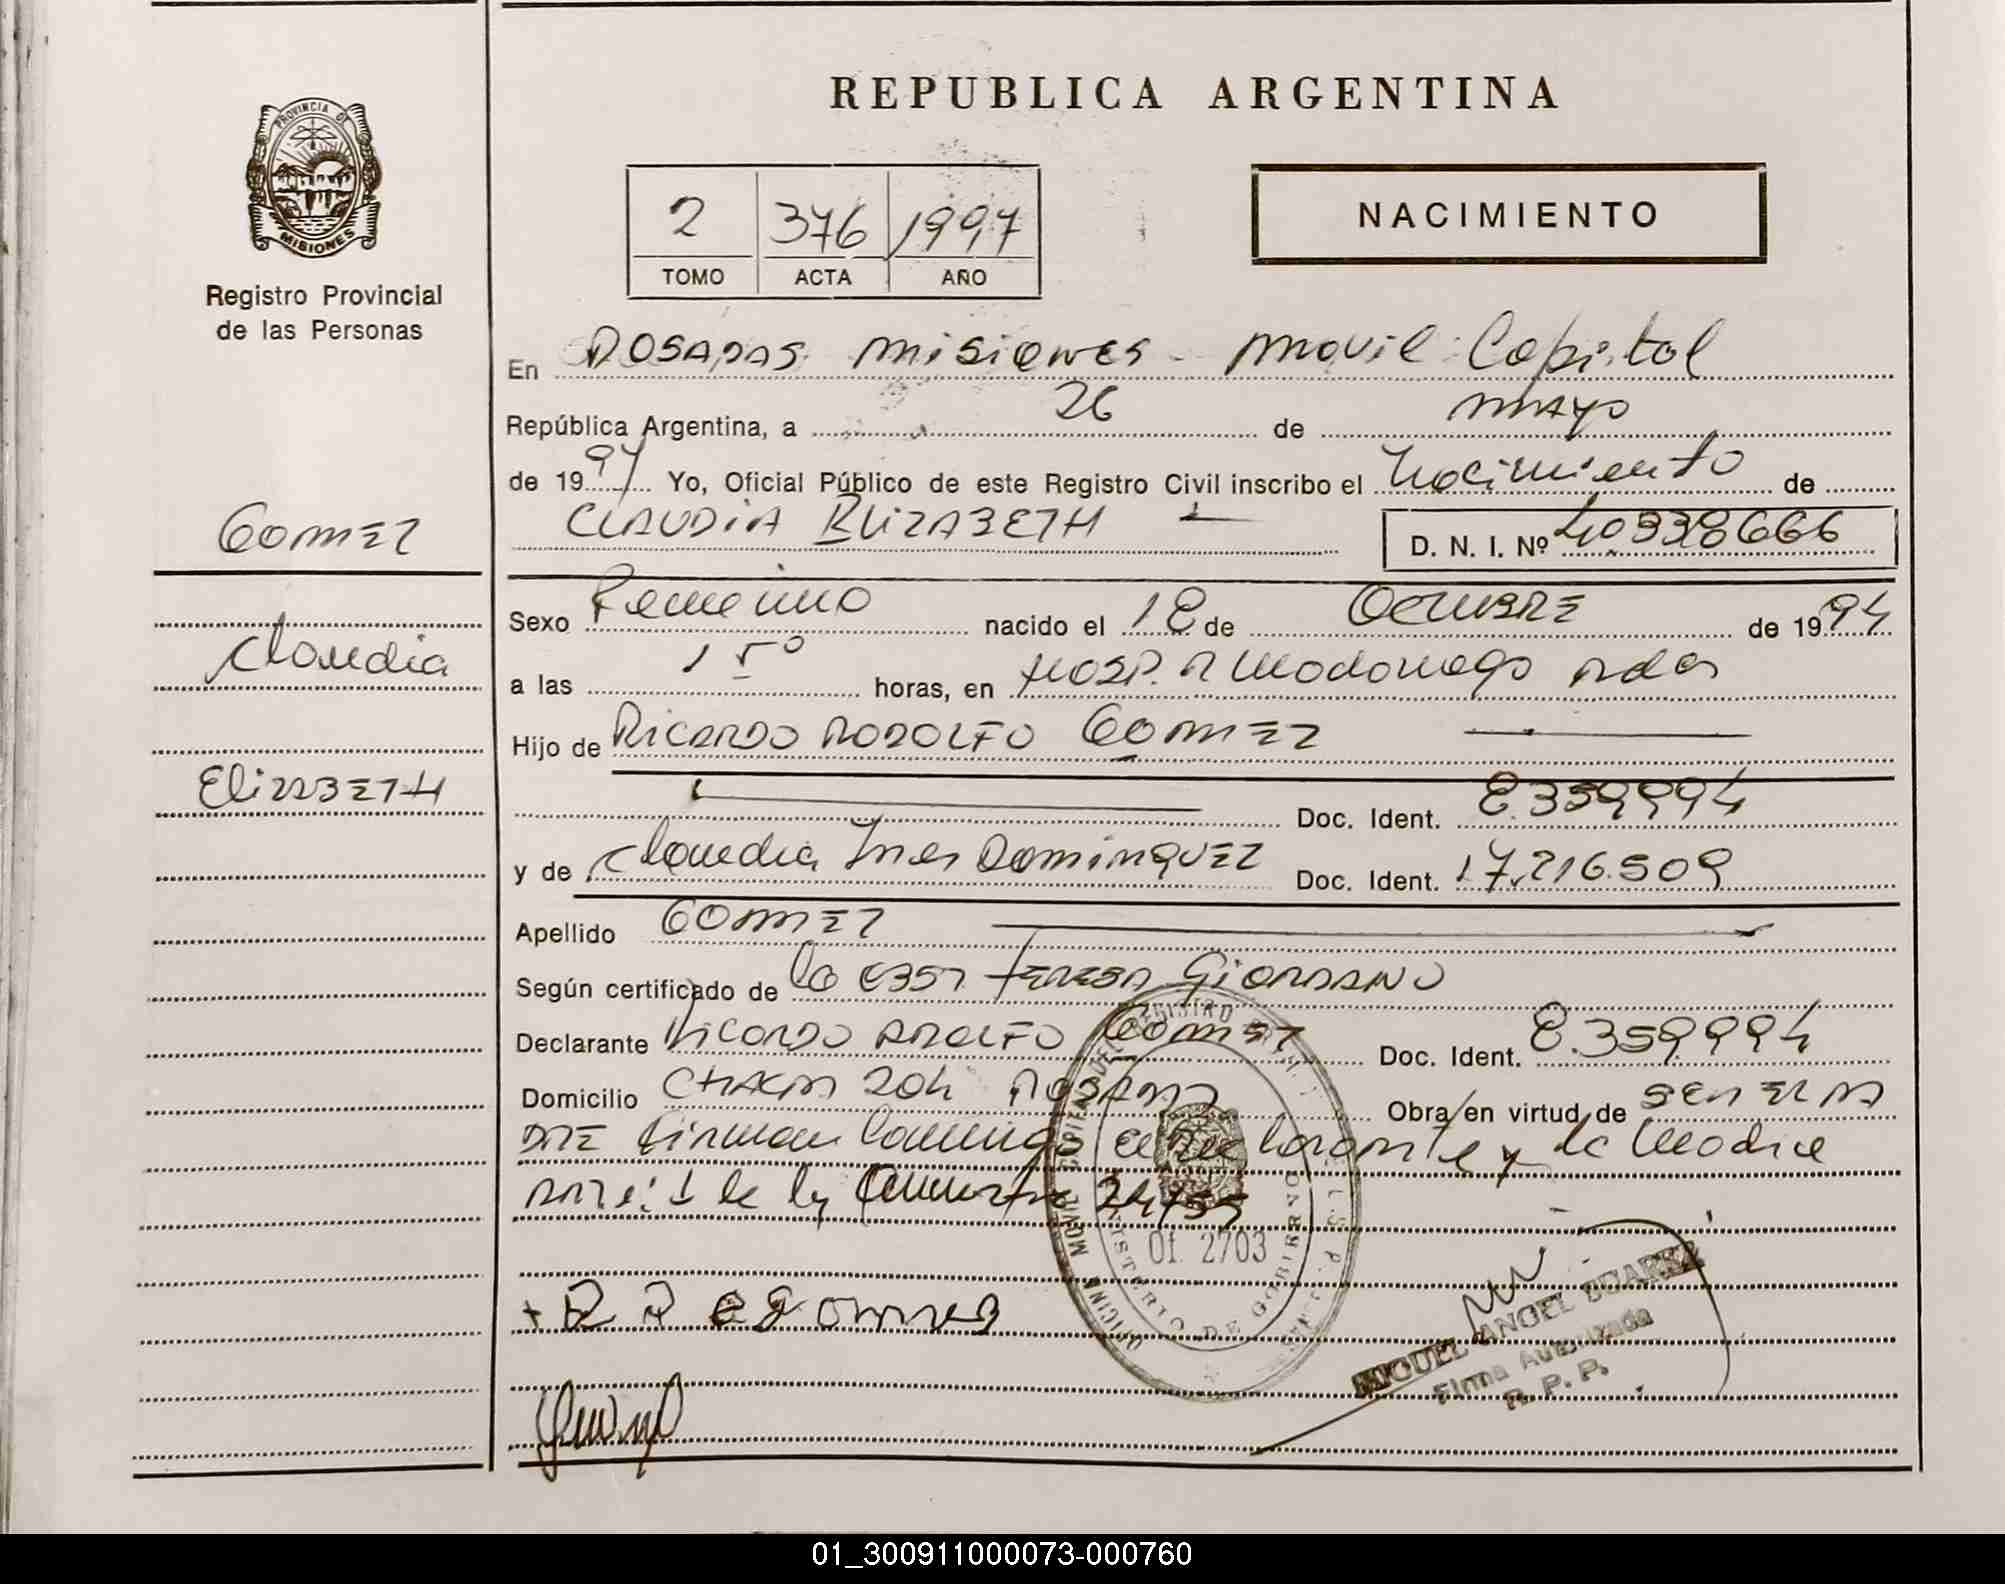 REPUBLICA ARGENTINA
PROVINCIA DE
MISIONES
Registro Provincial
de las Personas
2 376 1997
TOMO ACTA AÑO
NACIMIENTO
En Posadas Misiones - Movil Capital
República Argentina, a 26 de mayo
de 1997 Yo, Oficial Público de este Registro Civil inscribo el Nacimiento de
CLAUDIA ELIZABETH
D. N. I. Nº 40338666
GOMEZ
Claudia
ElizABETH
Sexo Femenino nacido el 18 de Octubre de 1994
a las 15º horas, en Hosp. R Madariaga Pdas
Hijo de RICARDO RODOLFO GOMEZ
Doc. Ident. 8.359994
y de Claudia Ines DOMINGUEZ Doc. Ident. 17.216.509
Apellido GOMEZ
Según certificado de la Obst. TERESA GIORDANO
Declarante Ricardo RODOLFO GOMEZ Doc. Ident. 8.359994
Domicilio CHACRA 204 Posadas Obra en virtud de
Firman Conmigo el declarante y la Madre
de la
+ R R Gomes
OFICINA MOVIL REGISTRO
MINISTERIO DE GOBIERNO
Of. 2703
MIGUEL ANGEL DUARTE
Firma Autorizada
R. P. P.
01_300911000073-000760